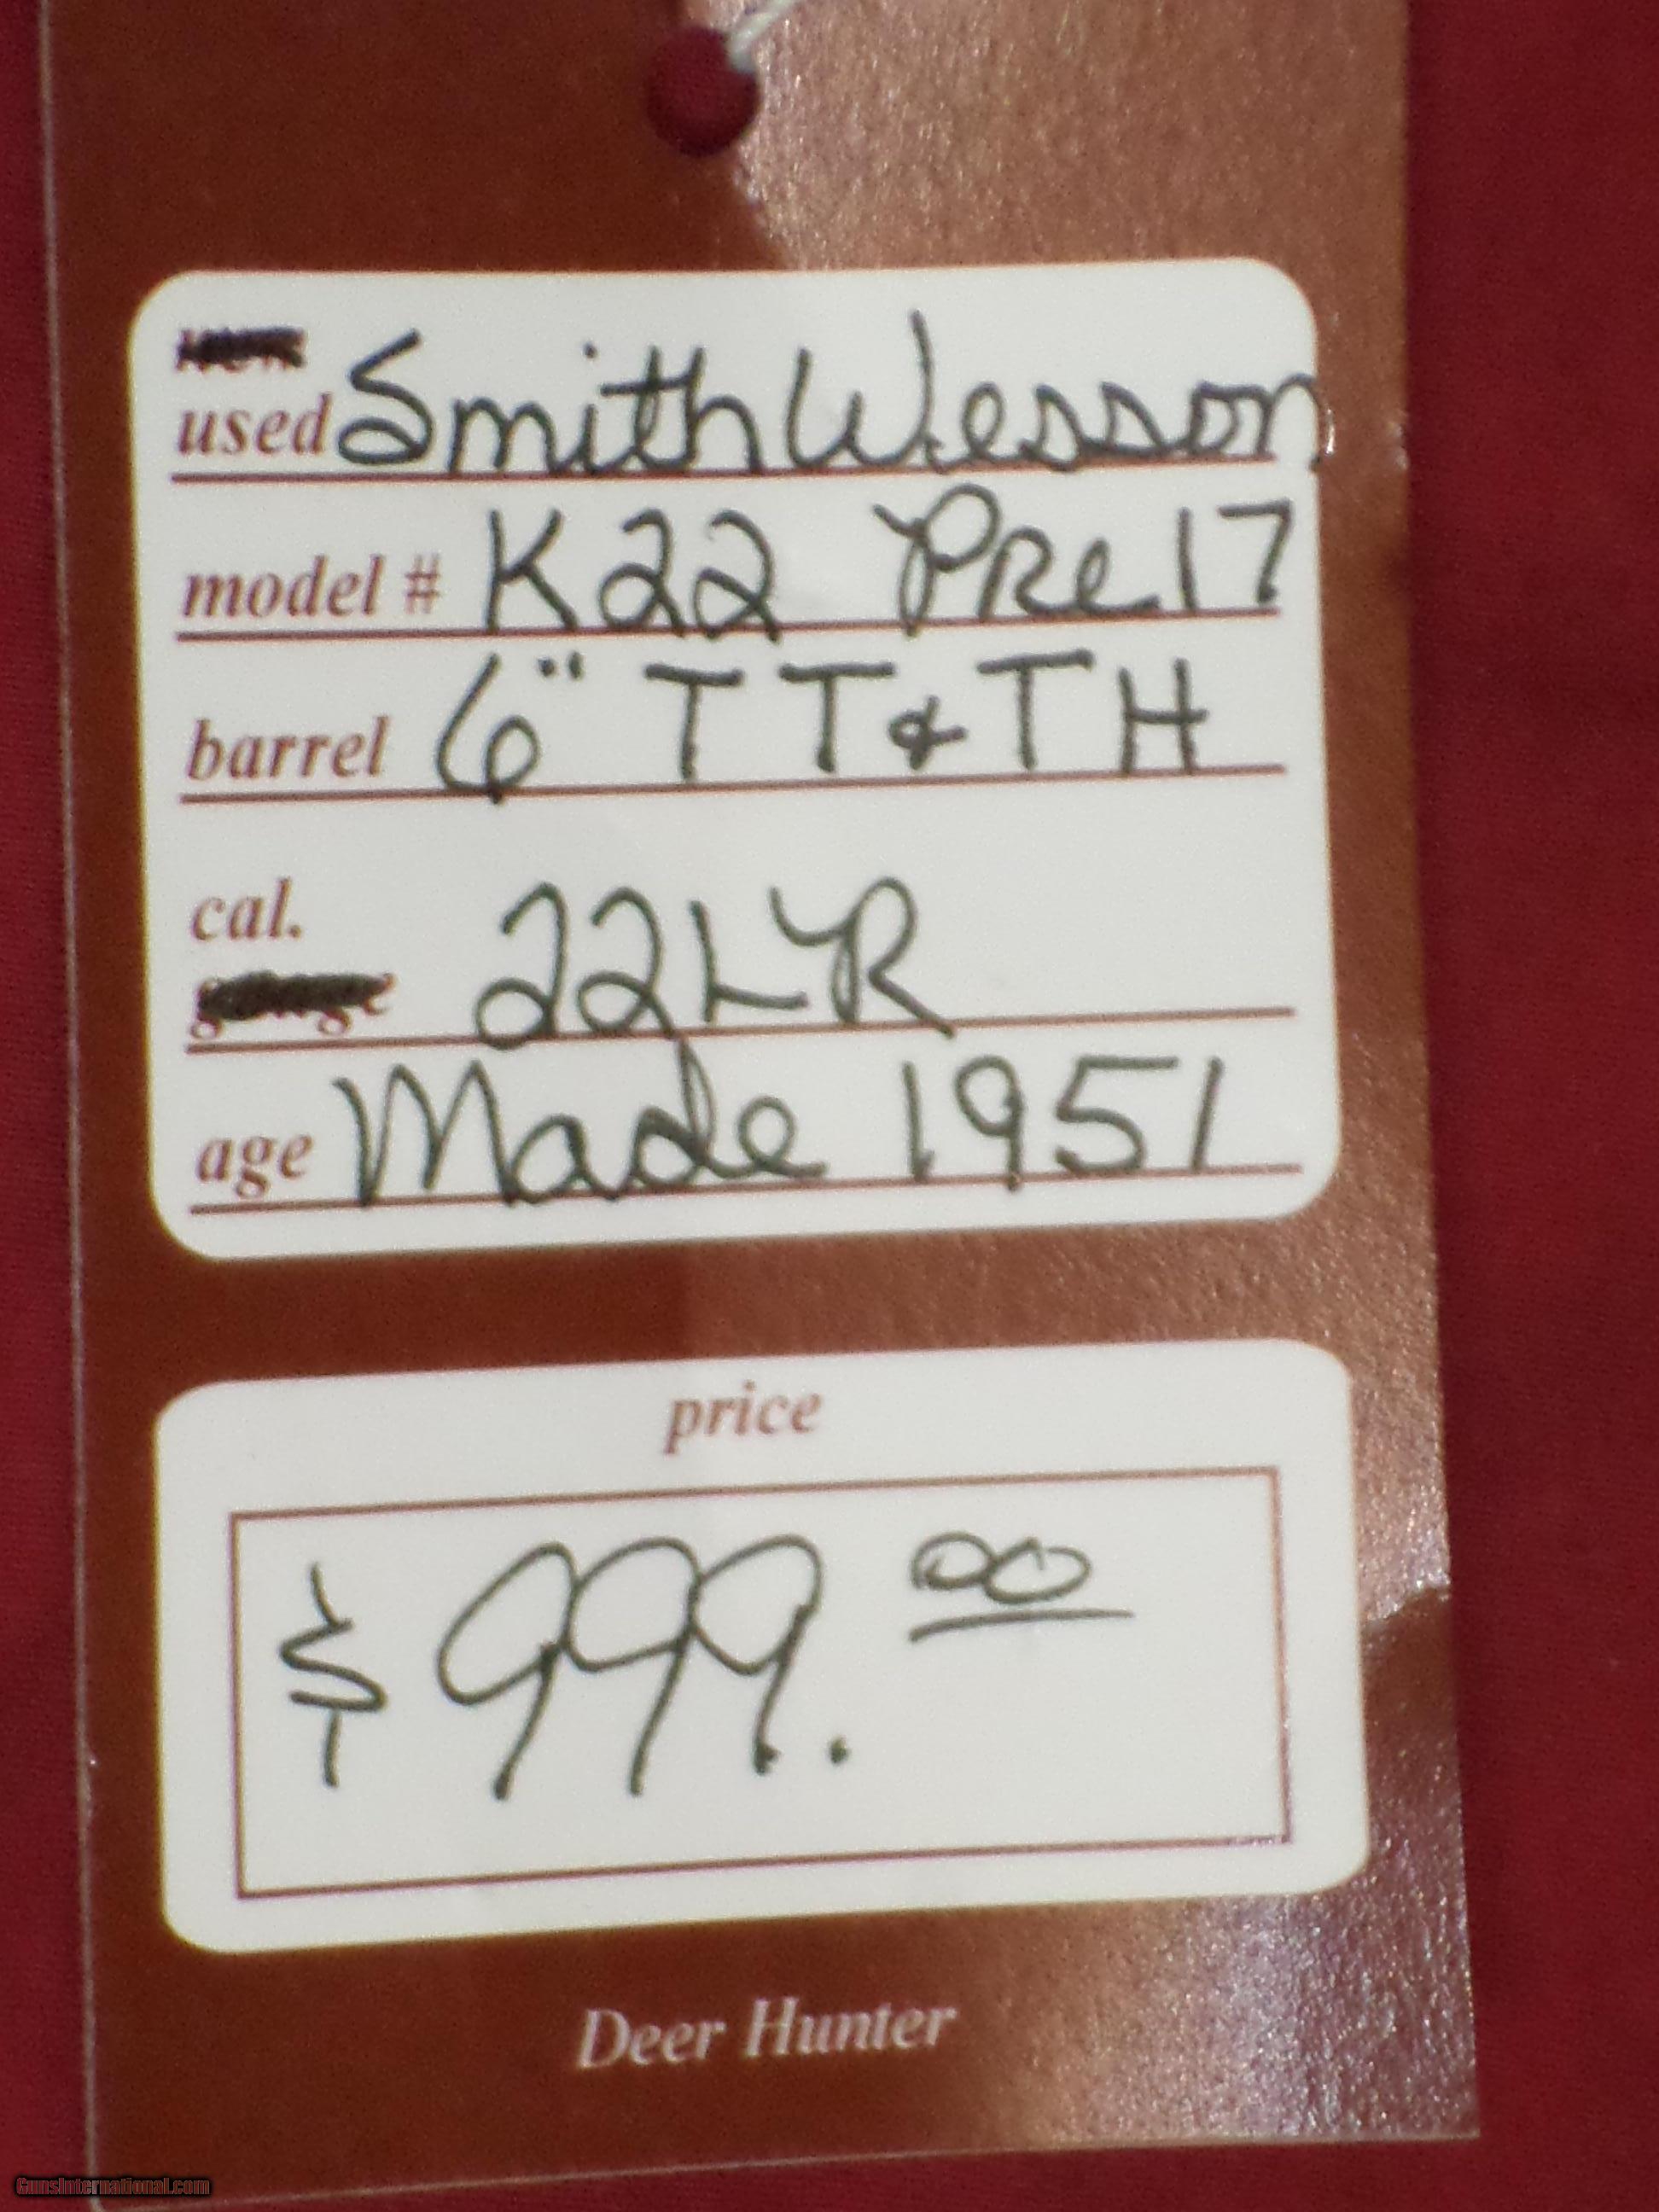 used Smith Wesson
model # K22 Pre 17
barrel 6" TT & TH
cal. 22LR
age Made 1951
price
$ 999.00
Deer Hunter
GunsInternational.com